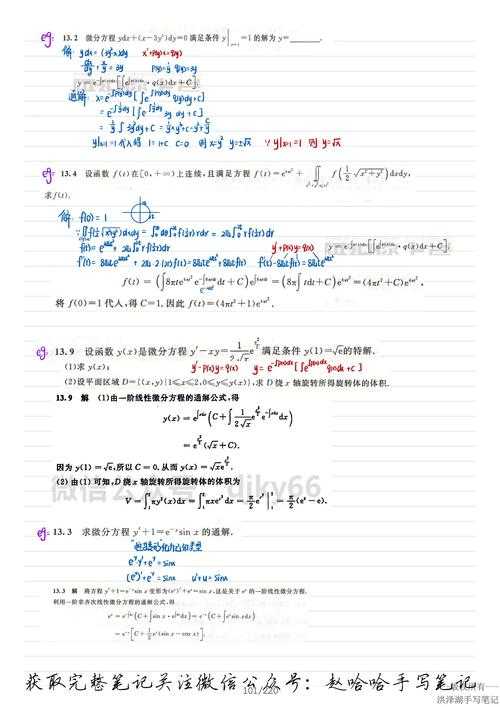 eg: 13.2 微分方程 ydx+(x-3y²)dy=0满足条件 y|ₓ₌₁=1的解为y=______.
解: ydx=(3y²-x)dy x'+p(y)x=q(y)
dx/dy+x/y=3y p(y)=1/y q(y)=3y
通解: x=e^{-∫p(y)dy}[∫e^{∫p(y)dy}q(y)dy+C]
=e^{-∫1/y dy}[∫e^{∫1/y dy}3y dy+C]
=1/y∫3y²dy+C=1/y×y³+C=y²+C/y
y|x=1=1代入解 1=1+C C=0 则x=y² y=±√x ∵y|x=1=1 则y=√x
eg: 13.4 设函数 f(t)在[0,+∞)上连续,且满足方程 f(t)=e^{4πt²}+∬_{x²+y²≤4t²} f(1/2 √(x²+y²))dxdy,
求f(t).
解: f(0)=1
f(t)=e^{4πt²}+2π∫₀^{2t}f(r/2)rdr y'+p(x)y=q(x)
f'(t)=8πte^{4πt²}+2π·2·(2t)f(t)=8πte^{4πt²}+8πtf(t) f'(t)-8πtf(t)=8πte^{4πt²}
f(t)=(∫8πte^{4πt²}e^{-∫8πtdt}dt+C)e^{∫8πtdt}=(8π∫tdt+C)e^{4πt²}=(4πt²+C)e^{4πt²},
将 f(0)=1代人,得C=1,因此 f(t)=(4πt²+1)e^{4πt²}.
eg: 13.9 设函数 y(x)是微分方程 y'-xy=1/(2√x) e^{x²/2} 满足条件 y(1)=√e的特解.
(1)求 y(x); y'+p(x)y=q(x) y=e^{-∫p(x)dx}[∫e^{∫p(x)dx}q(x)dx+C]
(2)设平面区域 D={(x,y)|1≤x≤2,0≤y≤y(x)},求 D 绕 x 轴旋转所得旋转体的体积.
13.9 解 (1)由一阶线性微分方程的通解公式,得
y(x)=e^{∫xdx}(C+∫1/(2√x) e^{x²/2}·e^{-∫xdx}dx)
=e^{x²/2}(√x+C).
因为 y(1)=√e,所以 C=0.从而 y(x)=√x e^{x²/2}.
(2)由(1)可知,D绕 x 轴旋转所得旋转体的体积为
V=∫₁²πy²(x)dx=∫₁²πxe^{x²}dx=π/2 e^{x²}|₁²=π/2(e⁴-e).
微信公众号 djky66
eg: 13.3 求微分方程 y'+1=e^{-y}sin x 的通解.
e^y y'+e^y=sinx
(e^y)'+e^y=sinx u'+u=sinx
13.3 解 将方程 y'+1=e^{-y}sin x 变形为(e^y)'+e^y=sin x,这是关于 e^y 的一阶线性微分方程.
利用一阶非齐次线性微分方程的通解公式,得
e^y=e^{-∫dx}(C+∫sin x·e^{∫dx}dx)=e^{-x}(C+∫e^x sin xdx)
=e^{-x}[C+1/2 e^x(sin x-cos x)].
获取完整笔记关注微信公众号：赵哈哈手写笔记
101/220
洪泽湖手写笔记